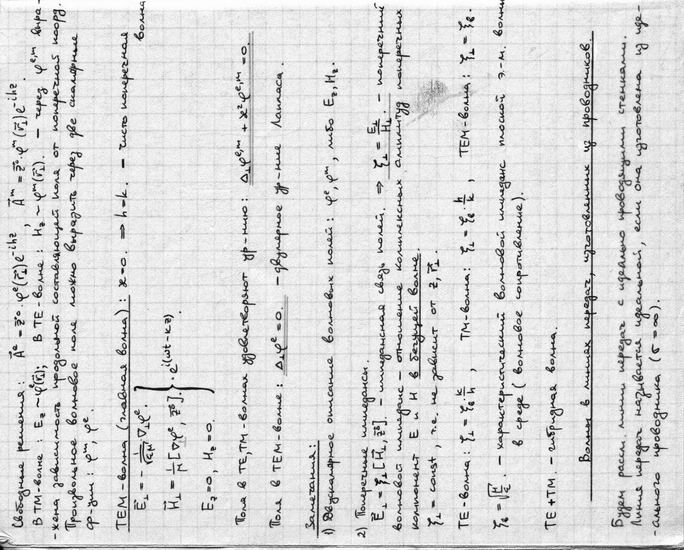 Свободные решения: A⃗ᵉ = z⃗⁰·φᵉ(r⃗⊥)e^{-ihz}, A⃗ᵐ = z⃗⁰·φᵐ(r⃗⊥)e^{-ihz}
В TM-волне: E_z ~ φᵉ(r⃗⊥); В TE-волне: H_z ~ φᵐ(r⃗⊥). – через φᵉ,ᵐ выра-
-жена зависимость продольной составляющей поля от поперечной коорд.
Произвольное волновое поле можно выразить через две скалярные
ф-ции: φᵐ, φᵉ.
TEM-волна (главная волна): æ=0. ⇒ h=k. – чисто поперечная волна
E⃗⊥ = -1/√(εμ) ∇⊥φᵉ.
H⃗⊥ = 1/μ [∇φᵉ, z⃗⁰] } ·e^{i(ωt-kz)}
E_z=0, H_z=0.
Поля в TE, TM-волнах удовлетворяют ур-нию: Δ⊥φᵉ,ᵐ + æ²φᵉ,ᵐ=0.
Поля в TEM-волне: Δ⊥φᵉ=0. – двумерное ур-ние Лапласа.
Замечания:
1) Двухскалярное описание волновых полей: φᵉ, φᵐ, либо E_z, H_z.
2) Поперечные импедансы.
E⃗⊥ = ζ⊥[H⃗⊥, z⃗⁰]. – импедансная связь полей. ⇒ ζ⊥ = E⊥/H⊥. – поперечный
волновой импеданс – отношение комплексных амплитуд поперечных
компонент E и H в бегущей волне.
ζ⊥=const, т.е. не зависит от z, r⃗⊥.
TE-волна: ζ⊥ = ζ_в·k/h, TM-волна: ζ⊥ = ζ_в·h/k, TEM-волна: ζ⊥ = ζ_в.
ζ_в=√(μ/ε) – характеристический волновой импеданс плоской э.-м. волны
в среде (волновое сопротивление).
TE+TM. – гибридная волна.
Волны в линиях передач, изготовленных из проводников.
Будем рассм. линии передач с идеально проводящими стенками.
Линия передач называется идеальной, если она изготовлена из иде-
-ального проводника (σ=∞).